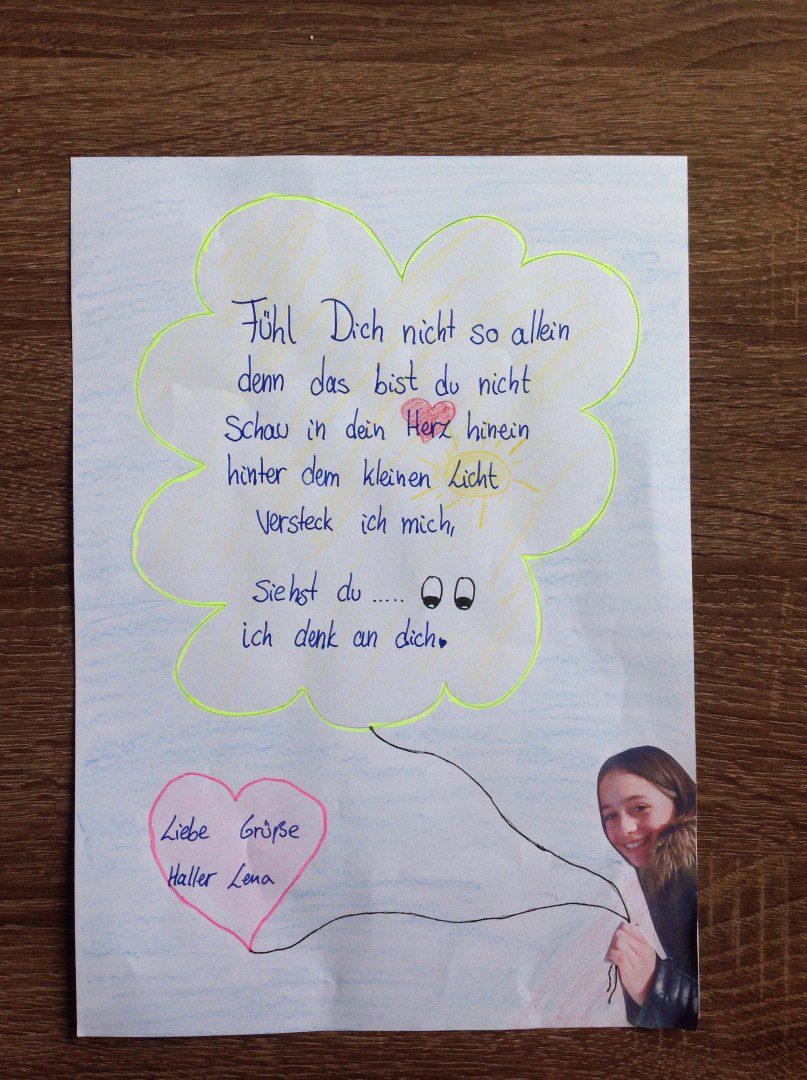 Fühl Dich nicht so allein
denn das bist du nicht
Schau in dein Herz hinein
hinter dem kleinen Licht
versteck ich mich,
Siehst du .....
ich denk an dich.
Liebe Grüße
Haller Lena